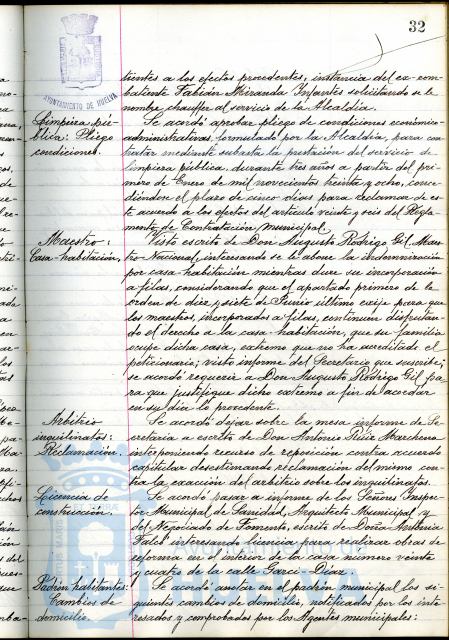 32
AYUNTAMIENTO DE HUELVA
tientes a los efectos procedentes, instancia del ex-com-
batiente Fabián Miranda Infantes solicitando se le
nombre chauffer al servicio de la Alcaldía.
Limpieza pú-
blica: Pliego
condiciones.
Se acordó aprobar pliego de condiciones económico-
administrativas, formulado por la Alcaldía, para con-
tratar mediante subasta la prestación del servicio de
limpieza pública, durante tres años a partir del pri-
mero de Enero de mil novecientos treinta y ocho, conce-
diéndose el plazo de cinco días para reclamar de es-
te acuerdo a los efectos del artículo veinte y seis del Regla-
mento de Contratación municipal.
Maestro:
Casa-habitación,
Visto escrito de Don Augusto Rodrigo Gil, Maes-
tro Nacional, interesando se le abone la indemnización
por casa-habitación mientras dure su incorporación
a filas, considerando que el apartado primero de la
orden de diez y siete de Junio último exije para que
los maestros, incorporados a filas, continúen disfrutan-
do el derecho a la casa-habitación, que su familia
ocupe dicha casa, extremo que no ha acreditado el
peticionario; visto informe del Secretario que suscribe;
se acordó requerir a Don Augusto Rodrigo Gil pa-
ra que justifique dicho extremo a fin de acordar
en su día lo procedente.
Arbitrio
inquilinatos:
Reclamación.
Se acordó dejar sobre la mesa informe de Se-
cretaría a escrito de Don Antonio Ruiz Marchena
interponiendo recurso de reposición contra acuerdo
capitular desestimando reclamación del mismo con-
tra la exacción del arbitrio sobre los inquilinatos.
Licencia de
construcción.
Se acordó pasar a informe de los Señores Inspec-
tor Municipal de Sanidad, Arquitecto Municipal y
del Negociado de Fomento, escrito de Doña Antonia
Falcó interesando licencia para realizar obras de
reforma en el interior de la casa número veinte
y cuatro de la calle Garci-Díaz.
Padrón habitantes:
Cambios de
domicilio.
Se acordó anotar en el padrón municipal los si-
guientes cambios de domicilio, notificados por los inte-
resados y comprobados por los Agentes municipales:
HUELVA